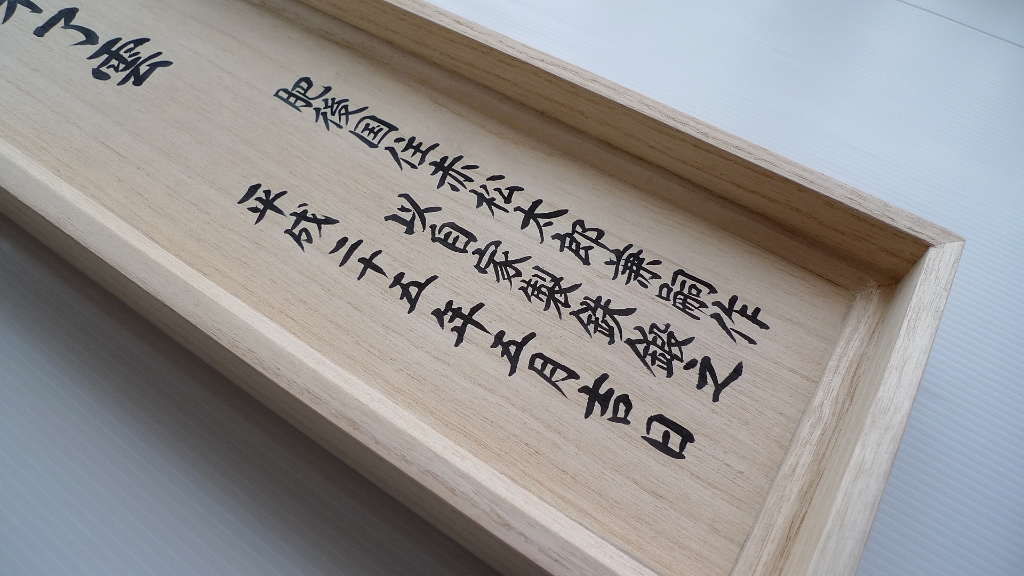 了雲
肥後国住赤松太郎兼嗣作
以自家製鉄鍛之
平成二十五年五月吉日